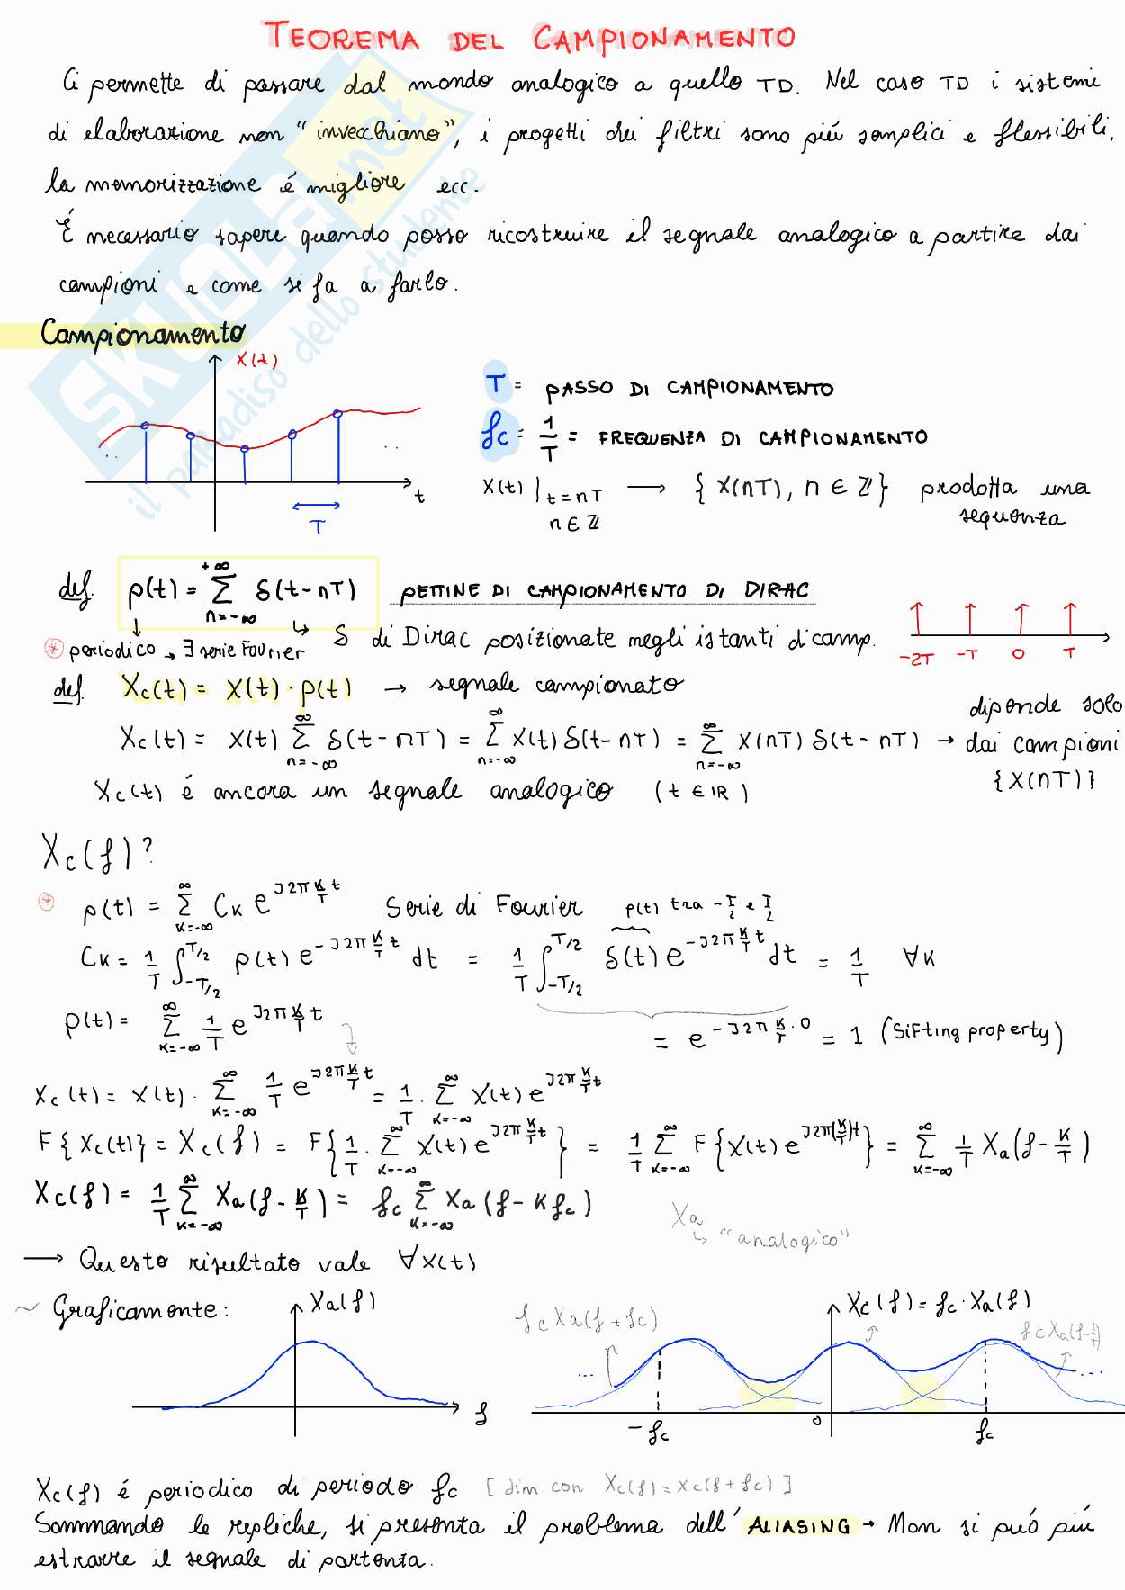 TEOREMA DEL CAMPIONAMENTO
Ci permette di passare dal mondo analogico a quello TD. Nel caso TD i sistemi
di elaborazione non "invecchiano", i progetti dei filtri sono piú semplici e flessibili,
la memorizzazione é migliore ecc.
É necessario sapere quando posso ricostruire il segnale analogico a partire dai
campioni e come si fa a farlo.
Campionamento
x(t)
T = PASSO DI CAMPIONAMENTO
fc = 1/T = FREQUENZA DI CAMPIONAMENTO
.. .. t
T
x(t) |t=nT n∈ℤ → { x(nT), n ∈ ℤ } prodotta una
sequenza
def. p(t) = Σ_{n=-∞}^{+∞} δ(t-nT) PETTINE DI CAMPIONAMENTO DI DIRAC
↳ δ di Dirac posizionate negli istanti di camp.
-2T -T 0 T
* periodico → ∃ serie Fourier
def. Xc(t) = x(t) · p(t) → segnale campionato
Xc(t) = x(t) Σ_{n=-∞}^{∞} δ(t-nT) = Σ_{n=-∞}^{∞} x(t) δ(t-nT) = Σ_{n=-∞}^{∞} x(nT) δ(t-nT) → dipende solo
dai campioni
{x(nT)}
Xc(t) é ancora un segnale analogico (t ∈ ℝ)
Xc(f)?
* p(t) = Σ_{k=-∞}^{∞} Ck e^{j2π k/T t} Serie di Fourier p(t) tra -T/2 e T/2
Ck = 1/T ∫_{-T/2}^{T/2} p(t) e^{-j2π k/T t} dt = 1/T ∫_{-T/2}^{T/2} δ(t) e^{-j2π k/T t} dt = 1/T ∀k
p(t) = Σ_{k=-∞}^{∞} 1/T e^{j2π k/T t}
= e^{-j2π k/T · 0} = 1 (Sifting property)
Xc(t) = x(t) · Σ_{k=-∞}^{∞} 1/T e^{j2π k/T t} = 1/T · Σ_{k=-∞}^{∞} x(t) e^{j2π k/T t}
F{Xc(t)} = Xc(f) = F{1/T · Σ_{k=-∞}^{∞} x(t) e^{j2π k/T t}} = 1/T Σ_{k=-∞}^{∞} F{x(t) e^{j2π(k/T)t}} = Σ_{k=-∞}^{∞} 1/T Xa(f - k/T)
Xc(f) = 1/T Σ_{k=-∞}^{∞} Xa(f - k/T) = fc Σ_{k=-∞}^{∞} Xa(f - k fc)
Xa
↳ "analogico"
→ Questo risultato vale ∀x(t)
~ Graficamente:
Xa(f)
f
fc Xa(f+fc)
Xc(f) = fc · Xa(f)
fc Xa(f-1/T)
... ...
-fc 0 fc
Xc(f) é periodico di periodo fc [dim con Xc(f) = Xc(f+fc)]
Sommando le repliche, si presenta il problema dell'ALIASING → Non si puó piú
estrarre il segnale di partenza.
SKUOLA.net
il paradiso dello studente